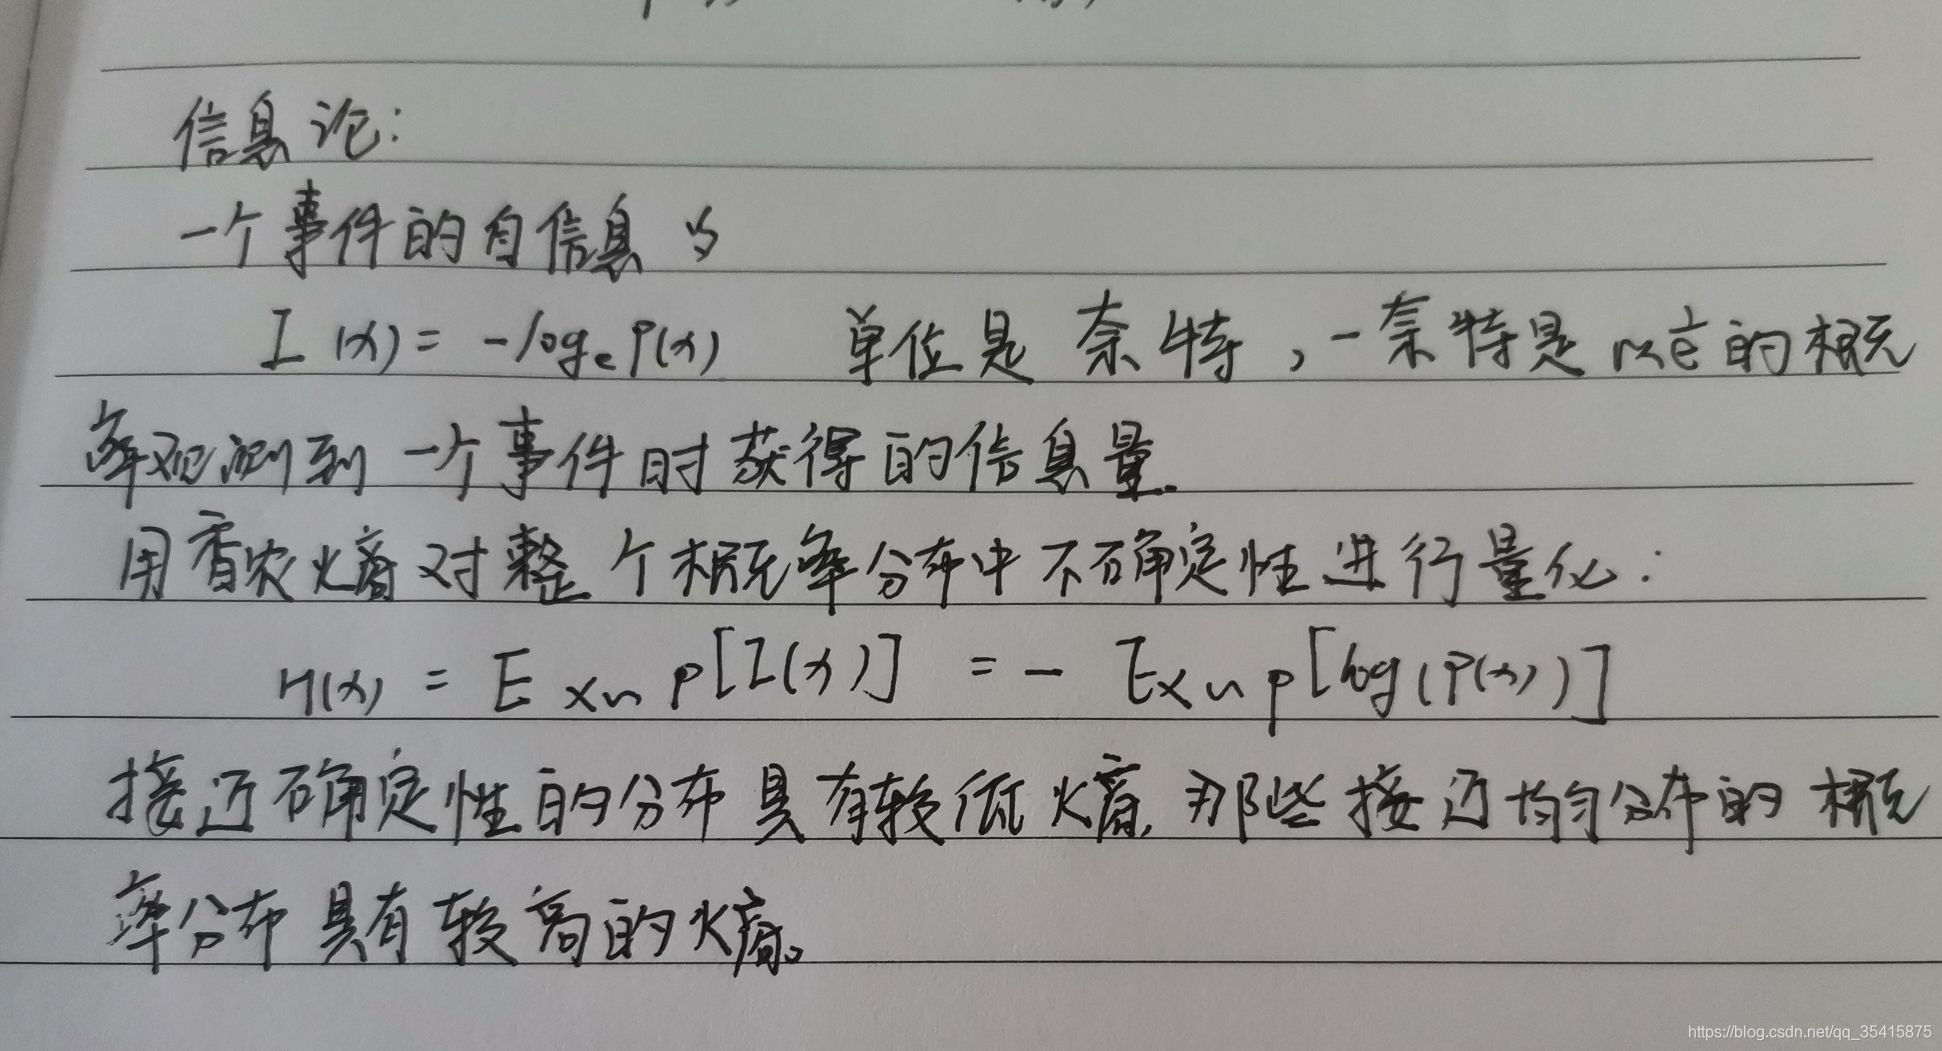 信息论:
一个事件的自信息为
I(x) = -logₑP(x) 单位是奈特，一奈特是以1/e的概
率观测到一个事件时获得的信息量.
用香农熵对整个概率分布中不确定性进行量化:
H(x) = E x~p[I(x)] = - E x~p[log(P(x))]
接近确定性的分布具有较低熵, 那些接近均匀分布的概
率分布具有较高的熵。
https://blog.csdn.net/qq_35415875